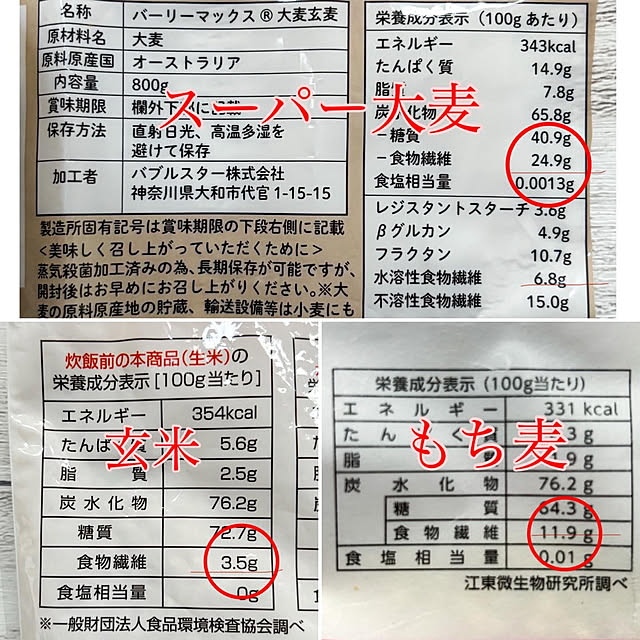 名称 バーリーマックス®大麦玄麦
原材料名 大麦
原料原産国 オーストラリア
内容量 800g
賞味期限 欄外下部に記載
保存方法 直射日光、高温多湿を
避けて保存
加工者 バブルスター株式会社
神奈川県大和市代官1-15-15
製造所固有記号は賞味期限の下段右側に記載
<美味しく召し上がっていただくために>
蒸気殺菌加工済みの為、長期保存が可能ですが、
開封後はお早めにお召し上がりください。※大
麦の原料原産地の貯蔵、輸送設備等は小麦にも
栄養成分表示(100gあたり)
エネルギー 343kcal
たんぱく質 14.9g
脂質 7.8g
炭水化物 65.8g
−糖質 40.9g
−食物繊維 24.9g
食塩相当量 0.0013g
レジスタントスターチ 3.6g
βグルカン 4.9g
フラクタン 10.7g
水溶性食物繊維 6.8g
不溶性食物繊維 15.0g
スーパー大麦
炊飯前の本商品(生米)の
栄養成分表示[100g当たり]
エネルギー 354kcal
たんぱく質 5.6g
脂質 2.5g
炭水化物 76.2g
糖質 72.7g
食物繊維 3.5g
食塩相当量 0g
※一般財団法人食品環境検査協会調べ
玄米
栄養成分表示(100g当たり)
エネルギー 331 kcal
たんぱく質 3 g
脂 .9 g
炭水化物 76.2 g
糖質 64.3 g
食物繊維 11.9 g
食塩相当量 0.01 g
江東微生物研究所調べ
もち麦